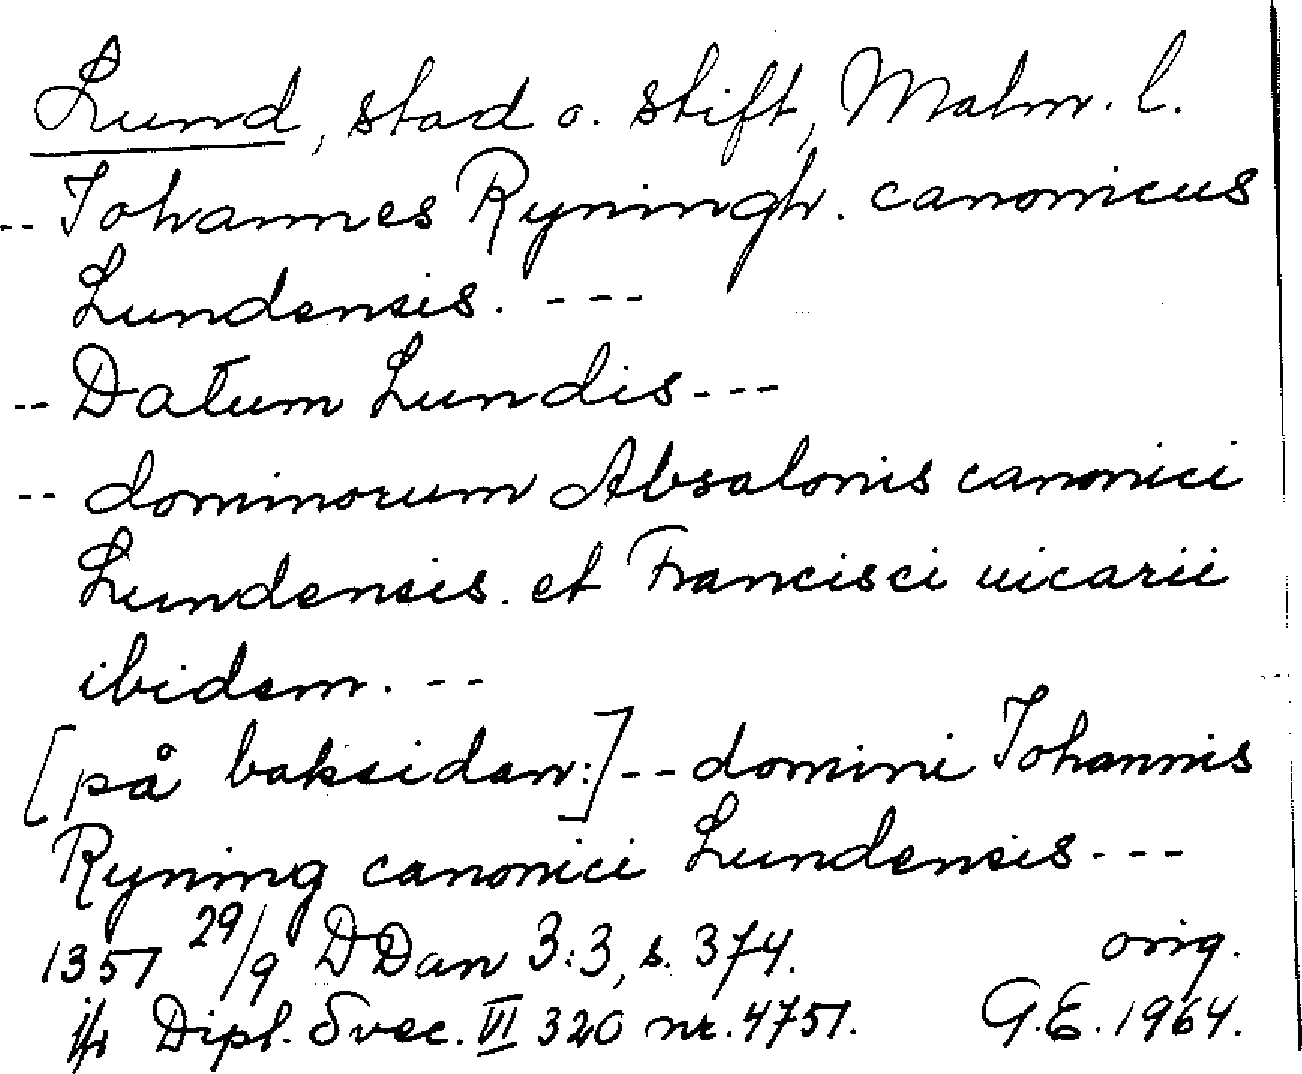 Lund, stad o. stift, Malm. l.
-- Johannes Ryningh. canonicus
Lundensis. ---
-- Datum Lundis ---
-- dominorum Absalonis canonici
Lundensis. et Francisci uicarii
ibidem. --
[på baksidan:] -- domini Johannis
Ryning canonici Lundensis ---
1357 29/9 DDan 3:3, s. 374. orig.
Dipl. Svec. VI 320 nr. 4751. G.E. 1964.